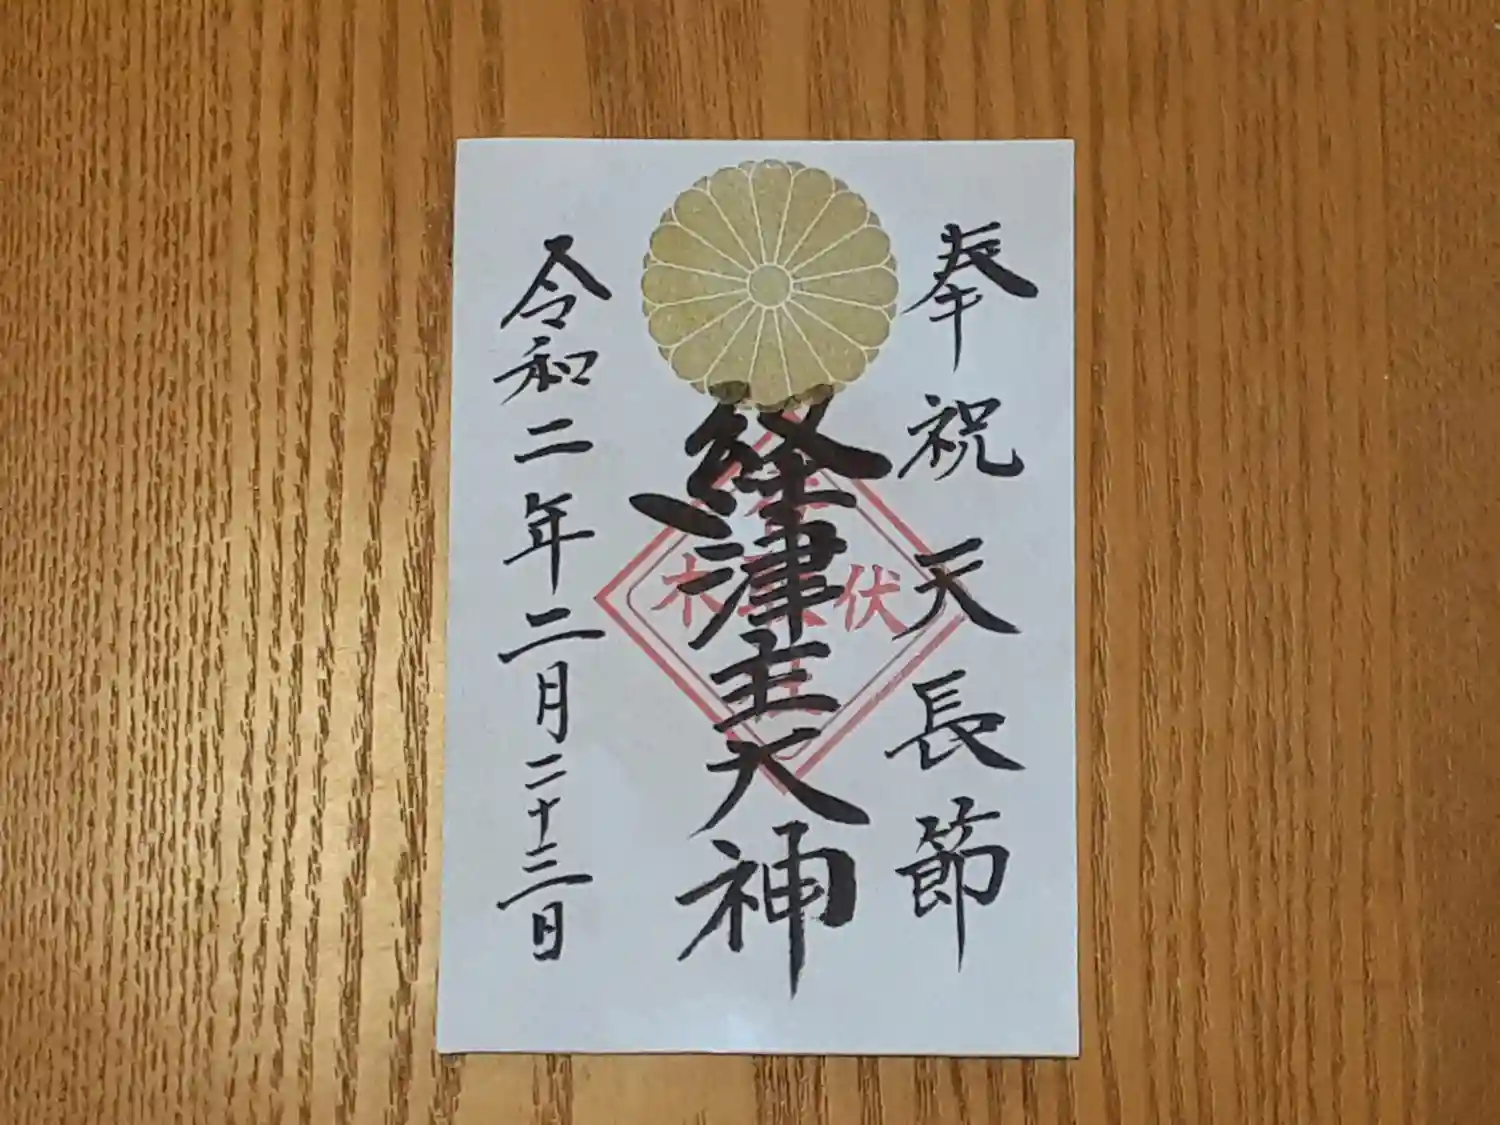 奉祝天長節
経津主大神
伏
木
令和二年二月二十三日